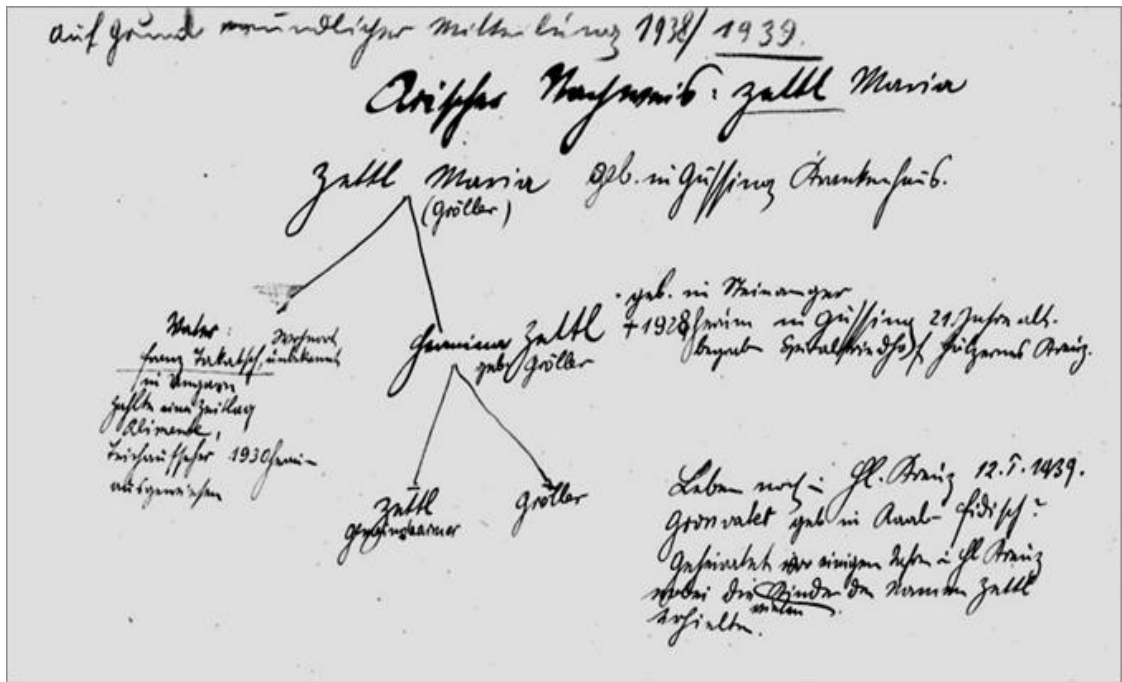 auf Grund mündlicher Mitteilung 1938/1939.
Arischer Nachweis: Zettl Maria
Zettl Maria geb. in Güssing Krankenhaus.
(Gröller)
Vater: Wohnort
Franz Takatsch, unbekannt
in Ungarn
zahlte eine Zeitlang
Alimente,
Teichaufseher 1930
ausgewiesen
Hermine Zettl
geb. Gröller
geb. in Steinanger
+ 1928 in Güssing 21 Jahre alt.
begrab. Spitalfriedhof, hölzernes Kreuz.
Zettl
Gemeindearmer
Gröller
Leben noch i. Hl. Kreuz 12.I.1939.
Grossvater geb. in Raab-Fidisch?
Geheiratet vor einigen Jahren i. Hl. Kreuz
wobei die Kinder den Namen Zettl
vielen
erhielten.